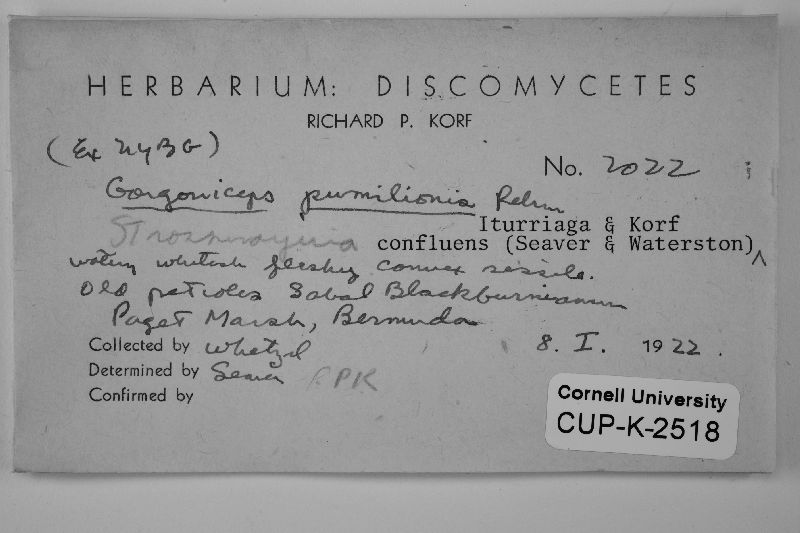 HERBARIUM: DISCOMYCETES
RICHARD P. KORF
(Ex NYBG)
No. 2022
Gorgoniceps pumilionis Rehm
Strossmayeria confluens (Seaver & Waterston) ^ Iturriaga & Korf
watery whitish fleshy convex sessile.
Old petioles Sabal Blackburnianum
Paget Marsh, Bermuda
Collected by Whetzel 8. I. 1922.
Determined by Seaver RPK
Confirmed by
Cornell University
CUP-K-2518